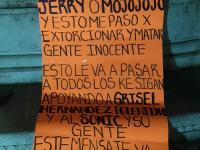 JERRY O MOJOJOJO
Y ESTO ME PASO X
EXTORCIONAR Y MATAR
GENTE INOCENTE
ESTO LE VA A PASAR
A TODOS LOS KE SIGAN
APOYANDO A GRISEL
HERNANDEZ TOLENTINO
Y AL SONIC Y SU
GENTE
ESTE MENSATE VA